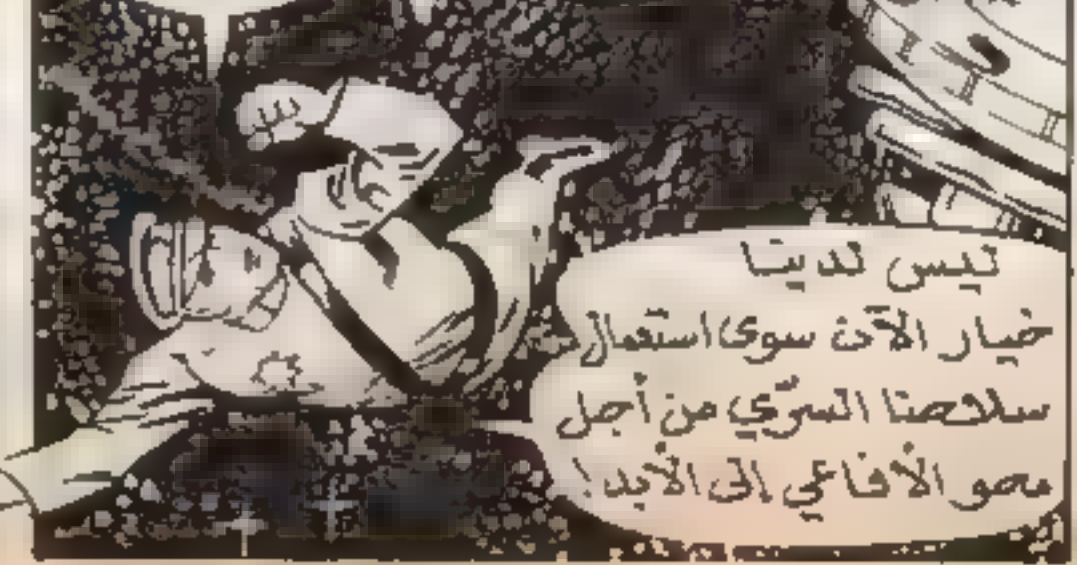 ليس لدينا
خيار الآن سوى استعمال
سلاحنا السرّي من أجل
محو الأفاعي إلى الأبد!